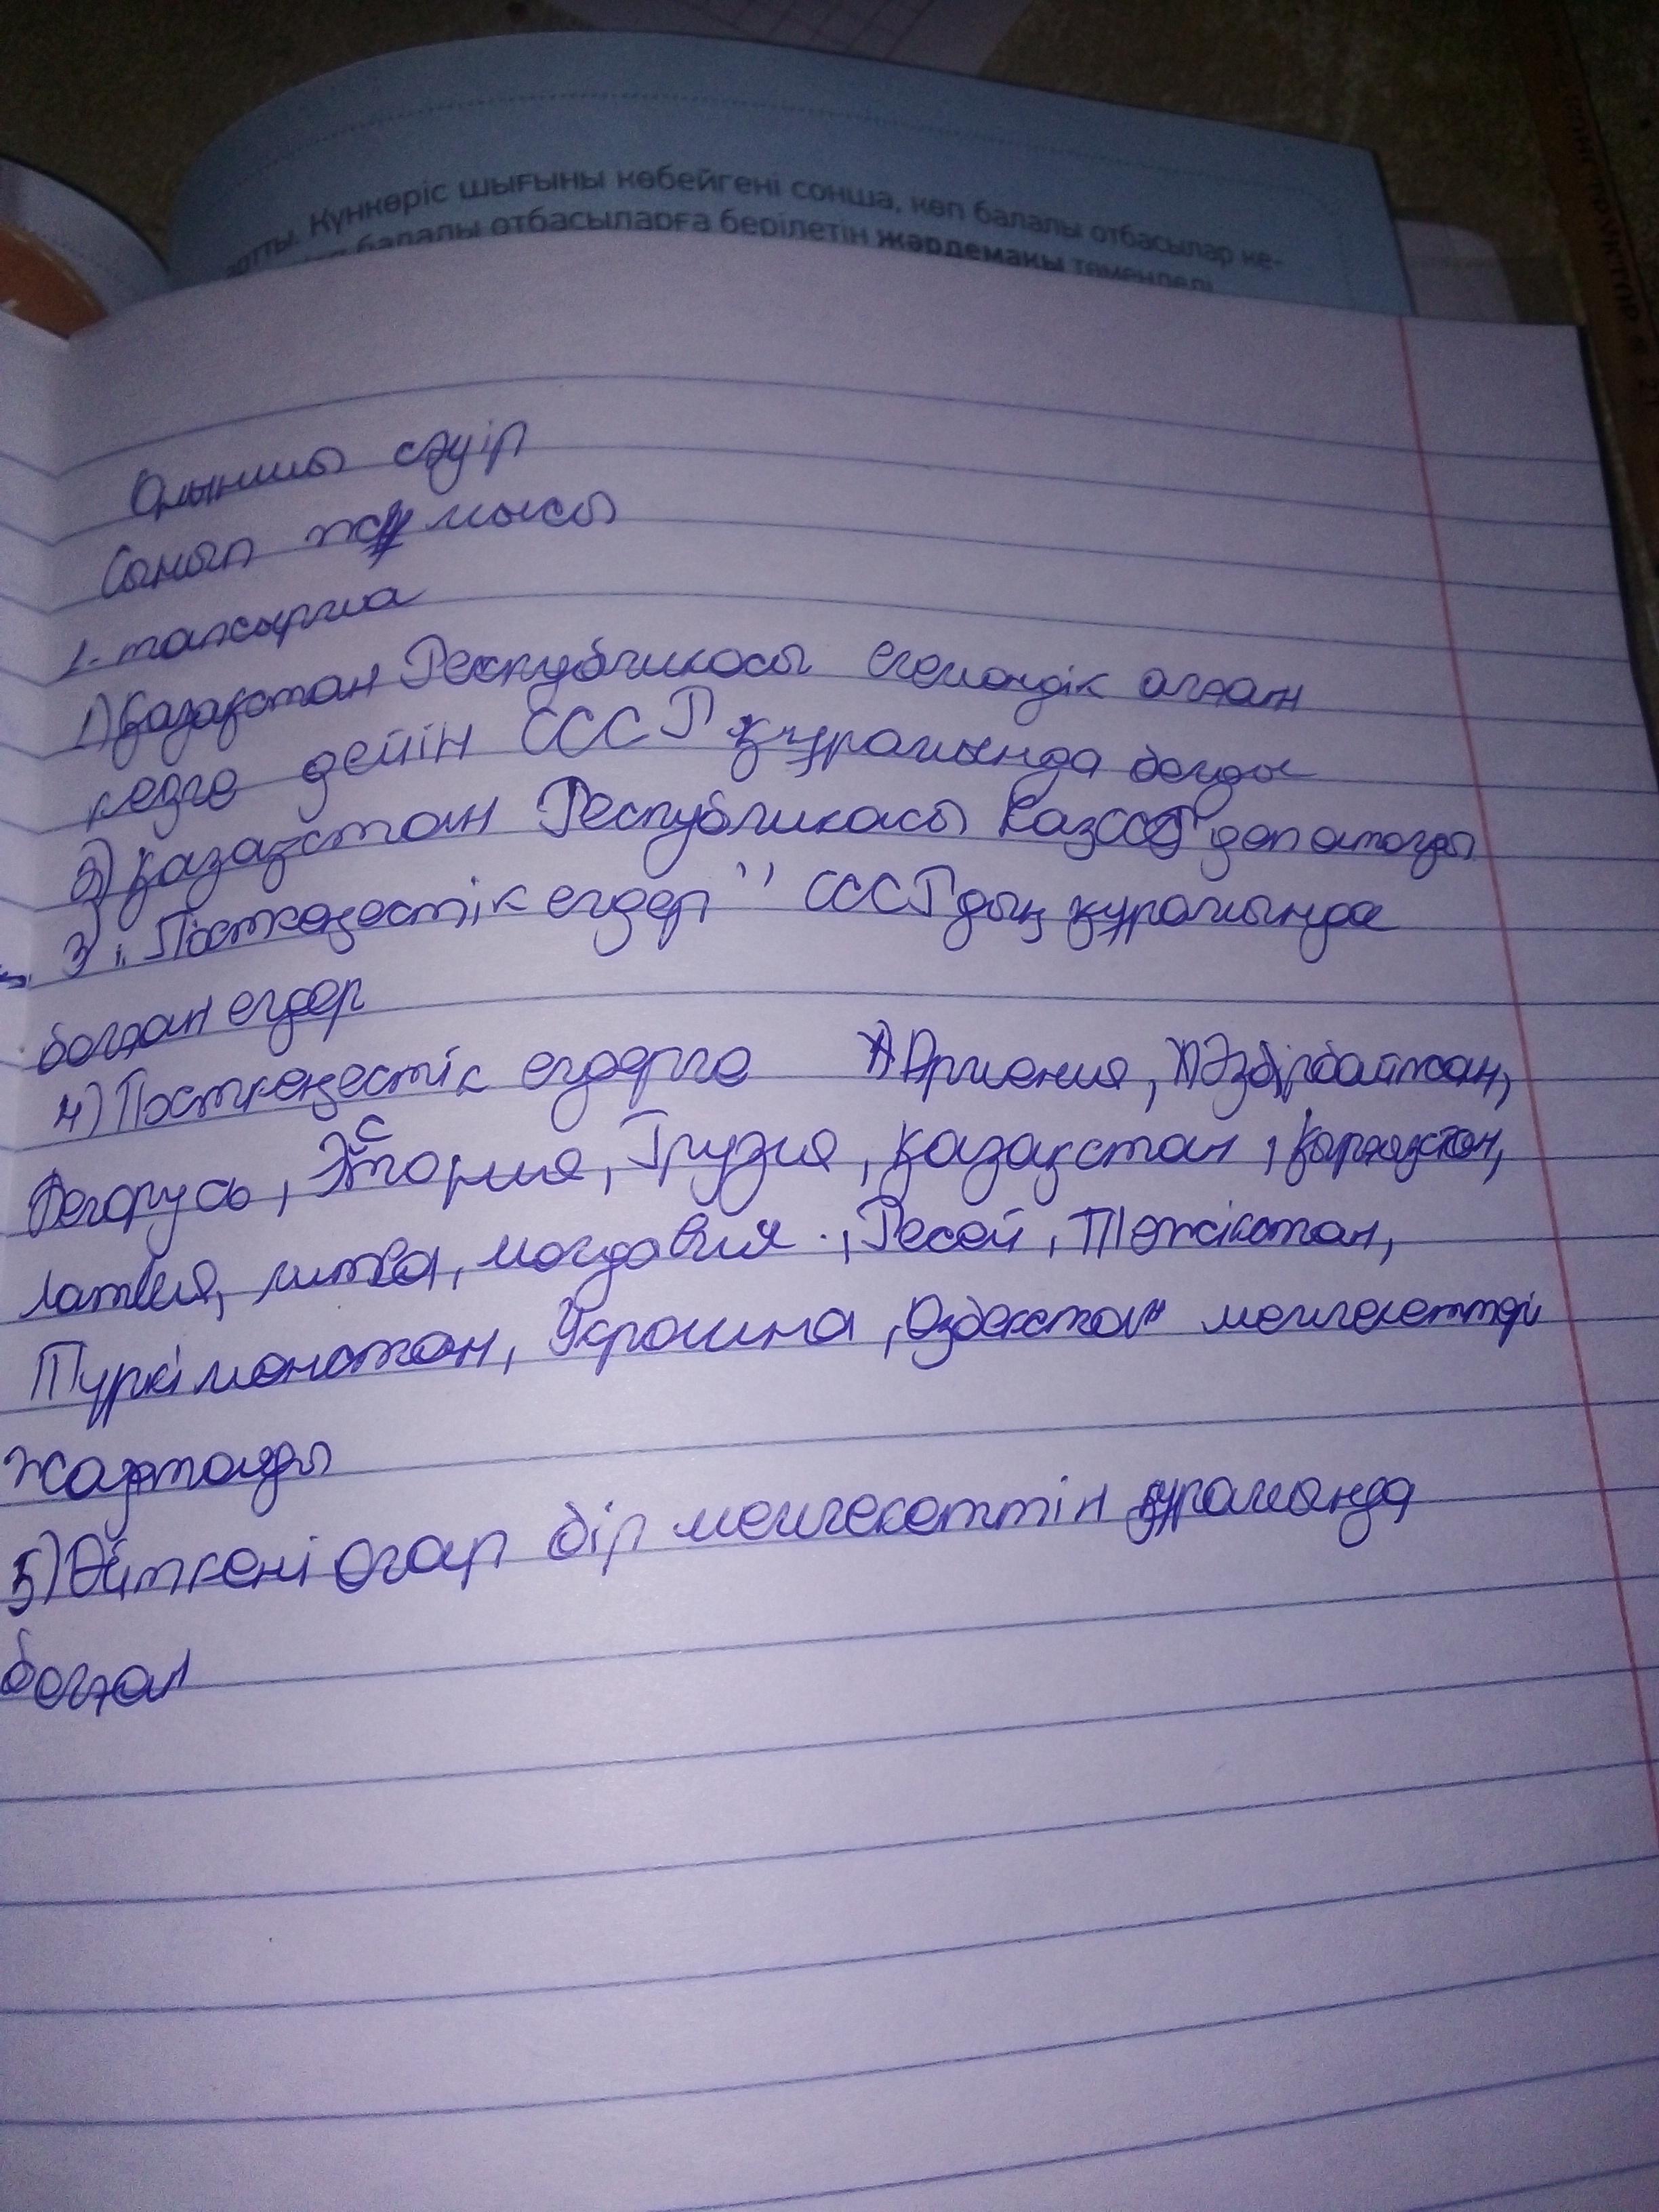 артты. Күнкөріс шығыны көбейгені сонша, көп балалы отбасылар ке-
балалы отбасыларға берілетін жәрдемақы төмендеді
Оныншы сәуір
Сынып жұмысы
1-тапсырма
1) Қазақстан Республикасы егемендік алған
кезге дейін СССР құрамында болды
2) Қазақстан Республикасы КазССР деп аталды
3 "Посткеңестік елдер" СССРдың құрамында
болған елдер
4) Посткеңестік елдерге Армения, Әзірбайжан,
Белорусь, Эстория, Грузия, Қазақстан, Қырғызстан,
латвия, литва, молдавия, Ресей, Тәжікстан,
Түркіменстан, Украина, Өзбекстан мемлекеттері
жартады
5) Өйткені олар бір мемлекеттің құрамында
болған